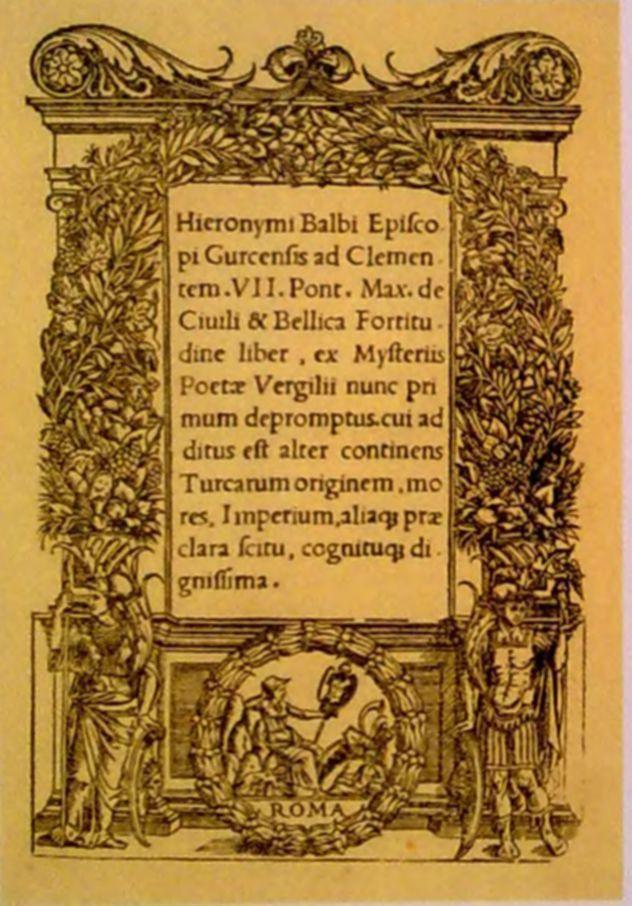 Hieronymi Balbi Epiſco-
pi Gurcenſis ad Clemen-
tem.VII. Pont. Max. de
Ciuili & Bellica Fortitu-
dine liber, ex Myſteriis
Poetæ Vergilii nunc pri
mum depromptus.cui ad
ditus eſt alter continens
Turcarum originem, mo
res, Imperium,aliaqꝫ præ
clara ſcitu, cognituqꝫ di-
gniſſima.
ROMA